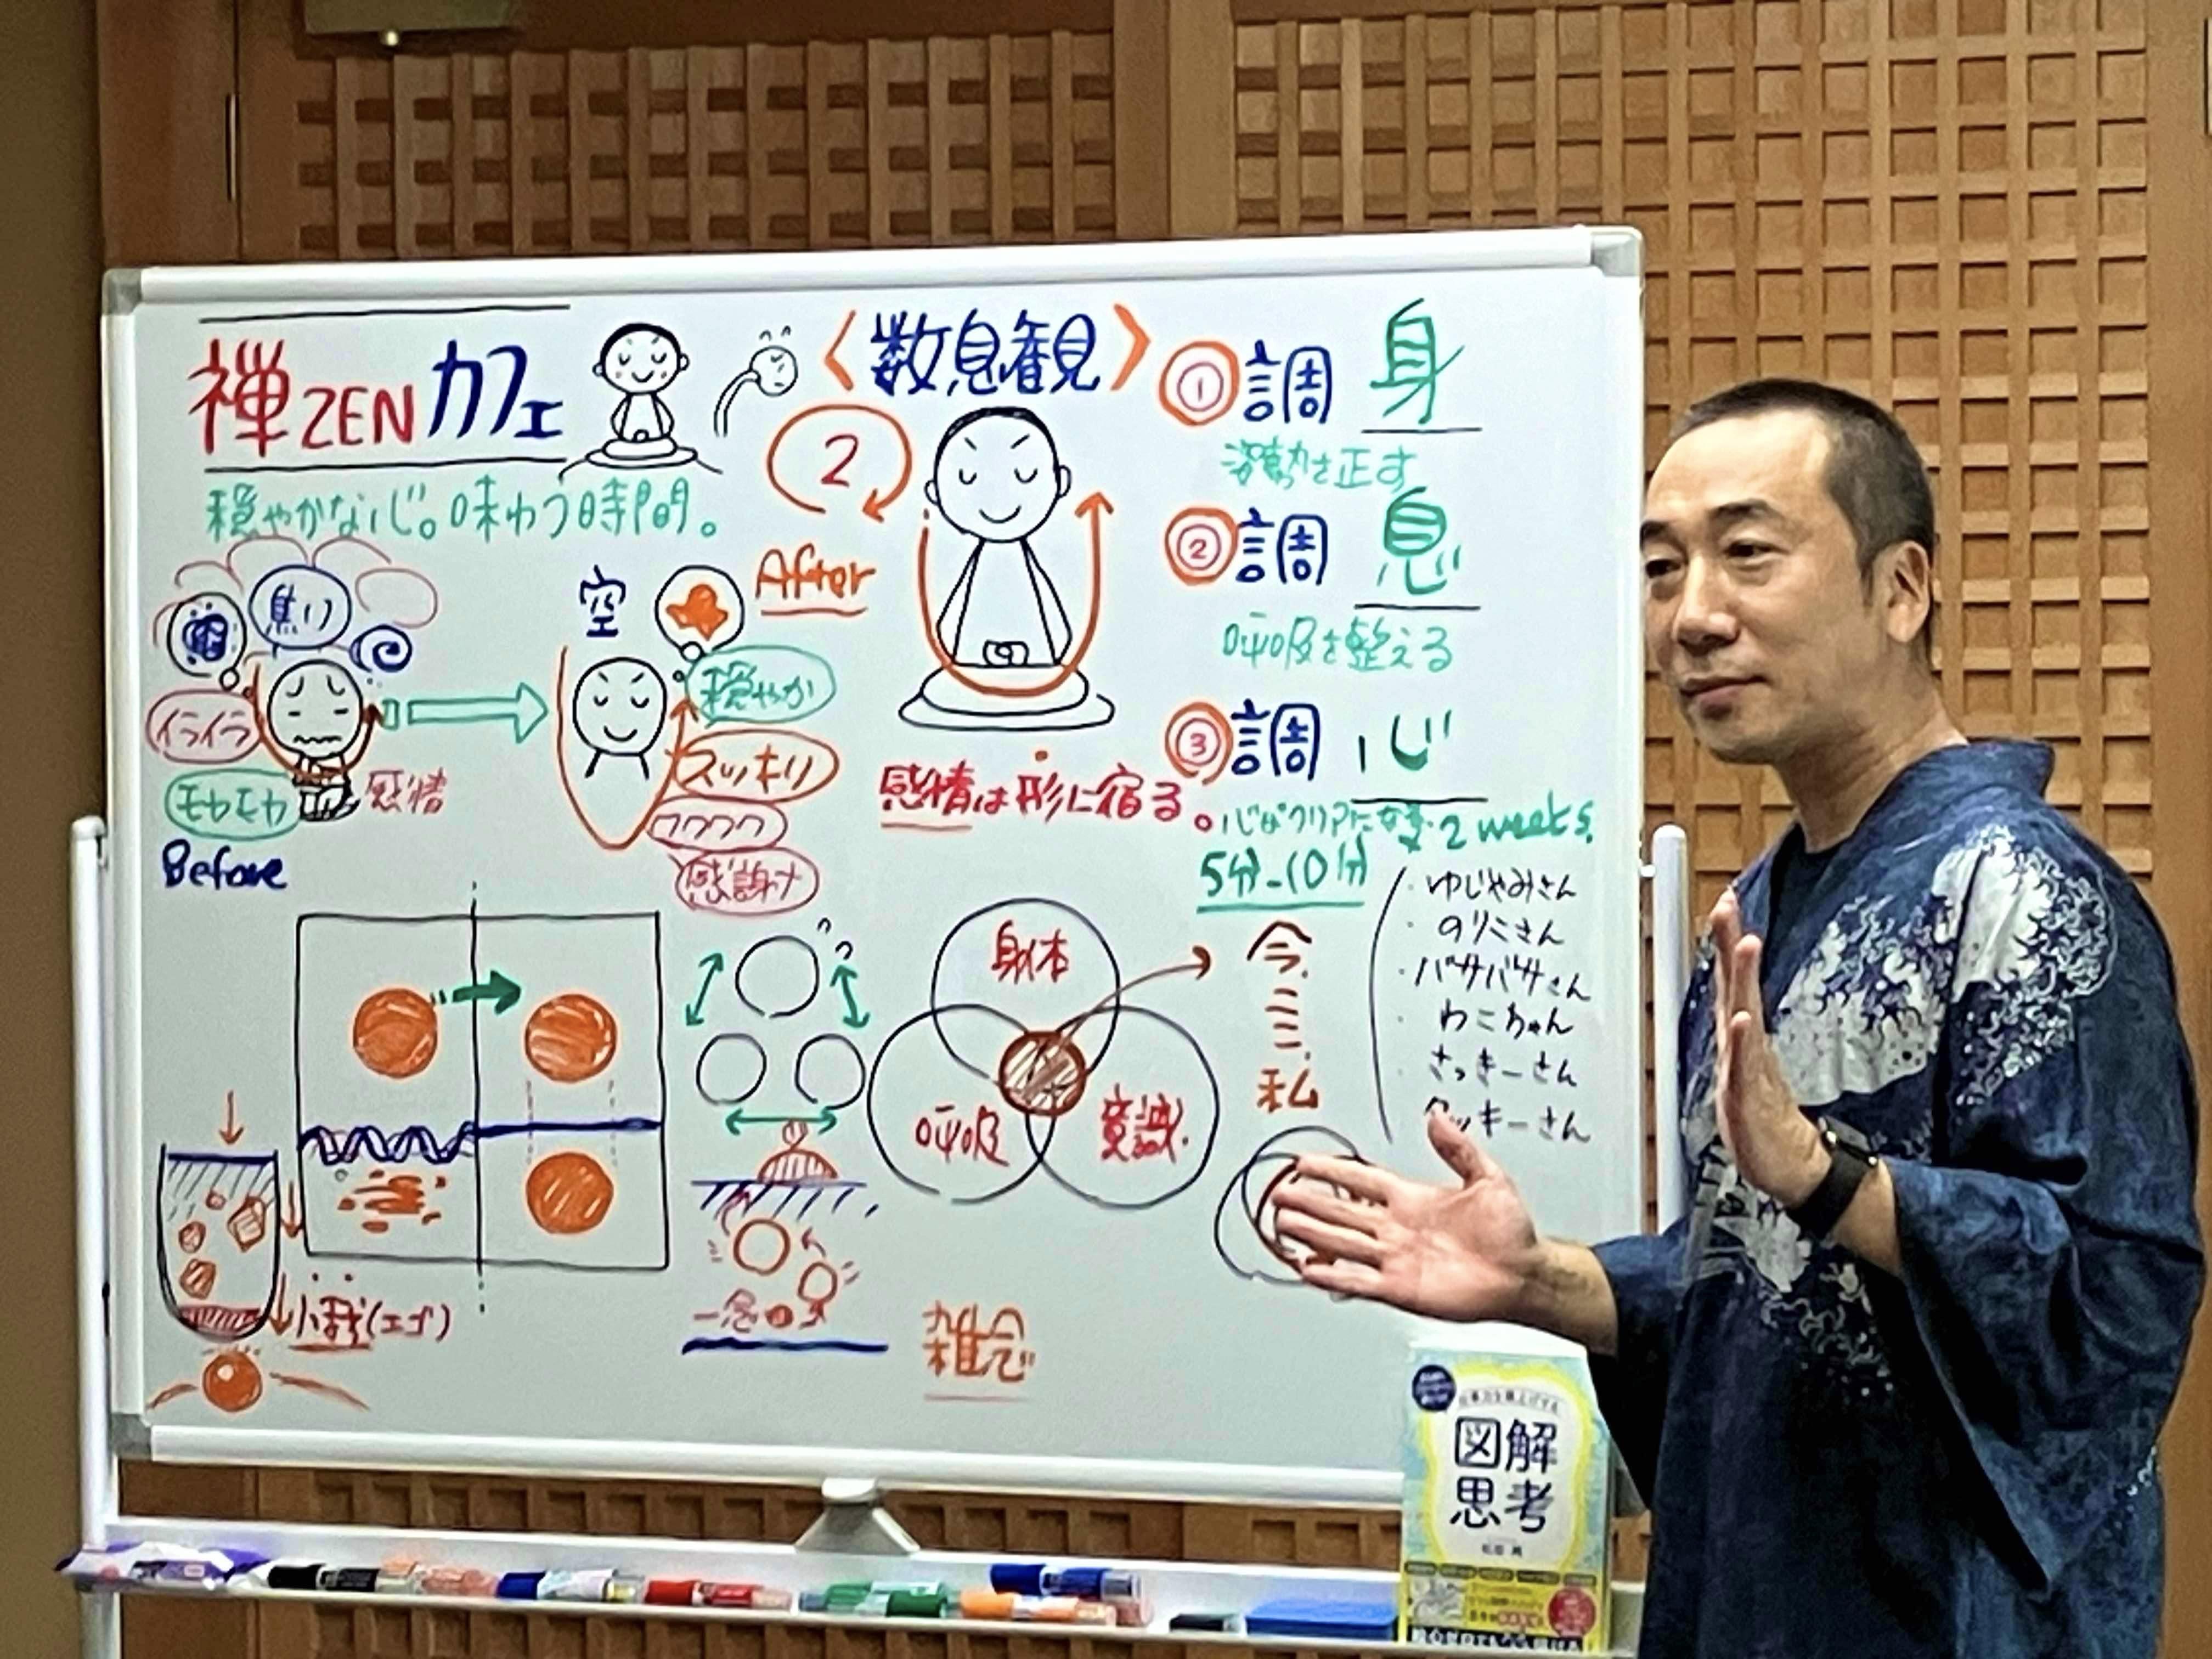 禅ZENカフェ
穏やかな心。味わう時間。
焦り
イライラ
モヤモヤ
感情
Before
空
After
穏やか
スッキリ
ワクワク
感謝
〈数息観〉
2
感情は形に宿る。
① 調身
姿勢を正す
② 調息
呼吸を整える
③ 調心
心がクリアに
2 weeks.
5分-10分
・ゆじゃみさん
・のりこさん
・バサバサさん
・わこちゃん
・さっきーさん
ッキーさん
身体
呼吸
意識
今
ここ
私
小我(エゴ)
一念
雑念
図解
思考